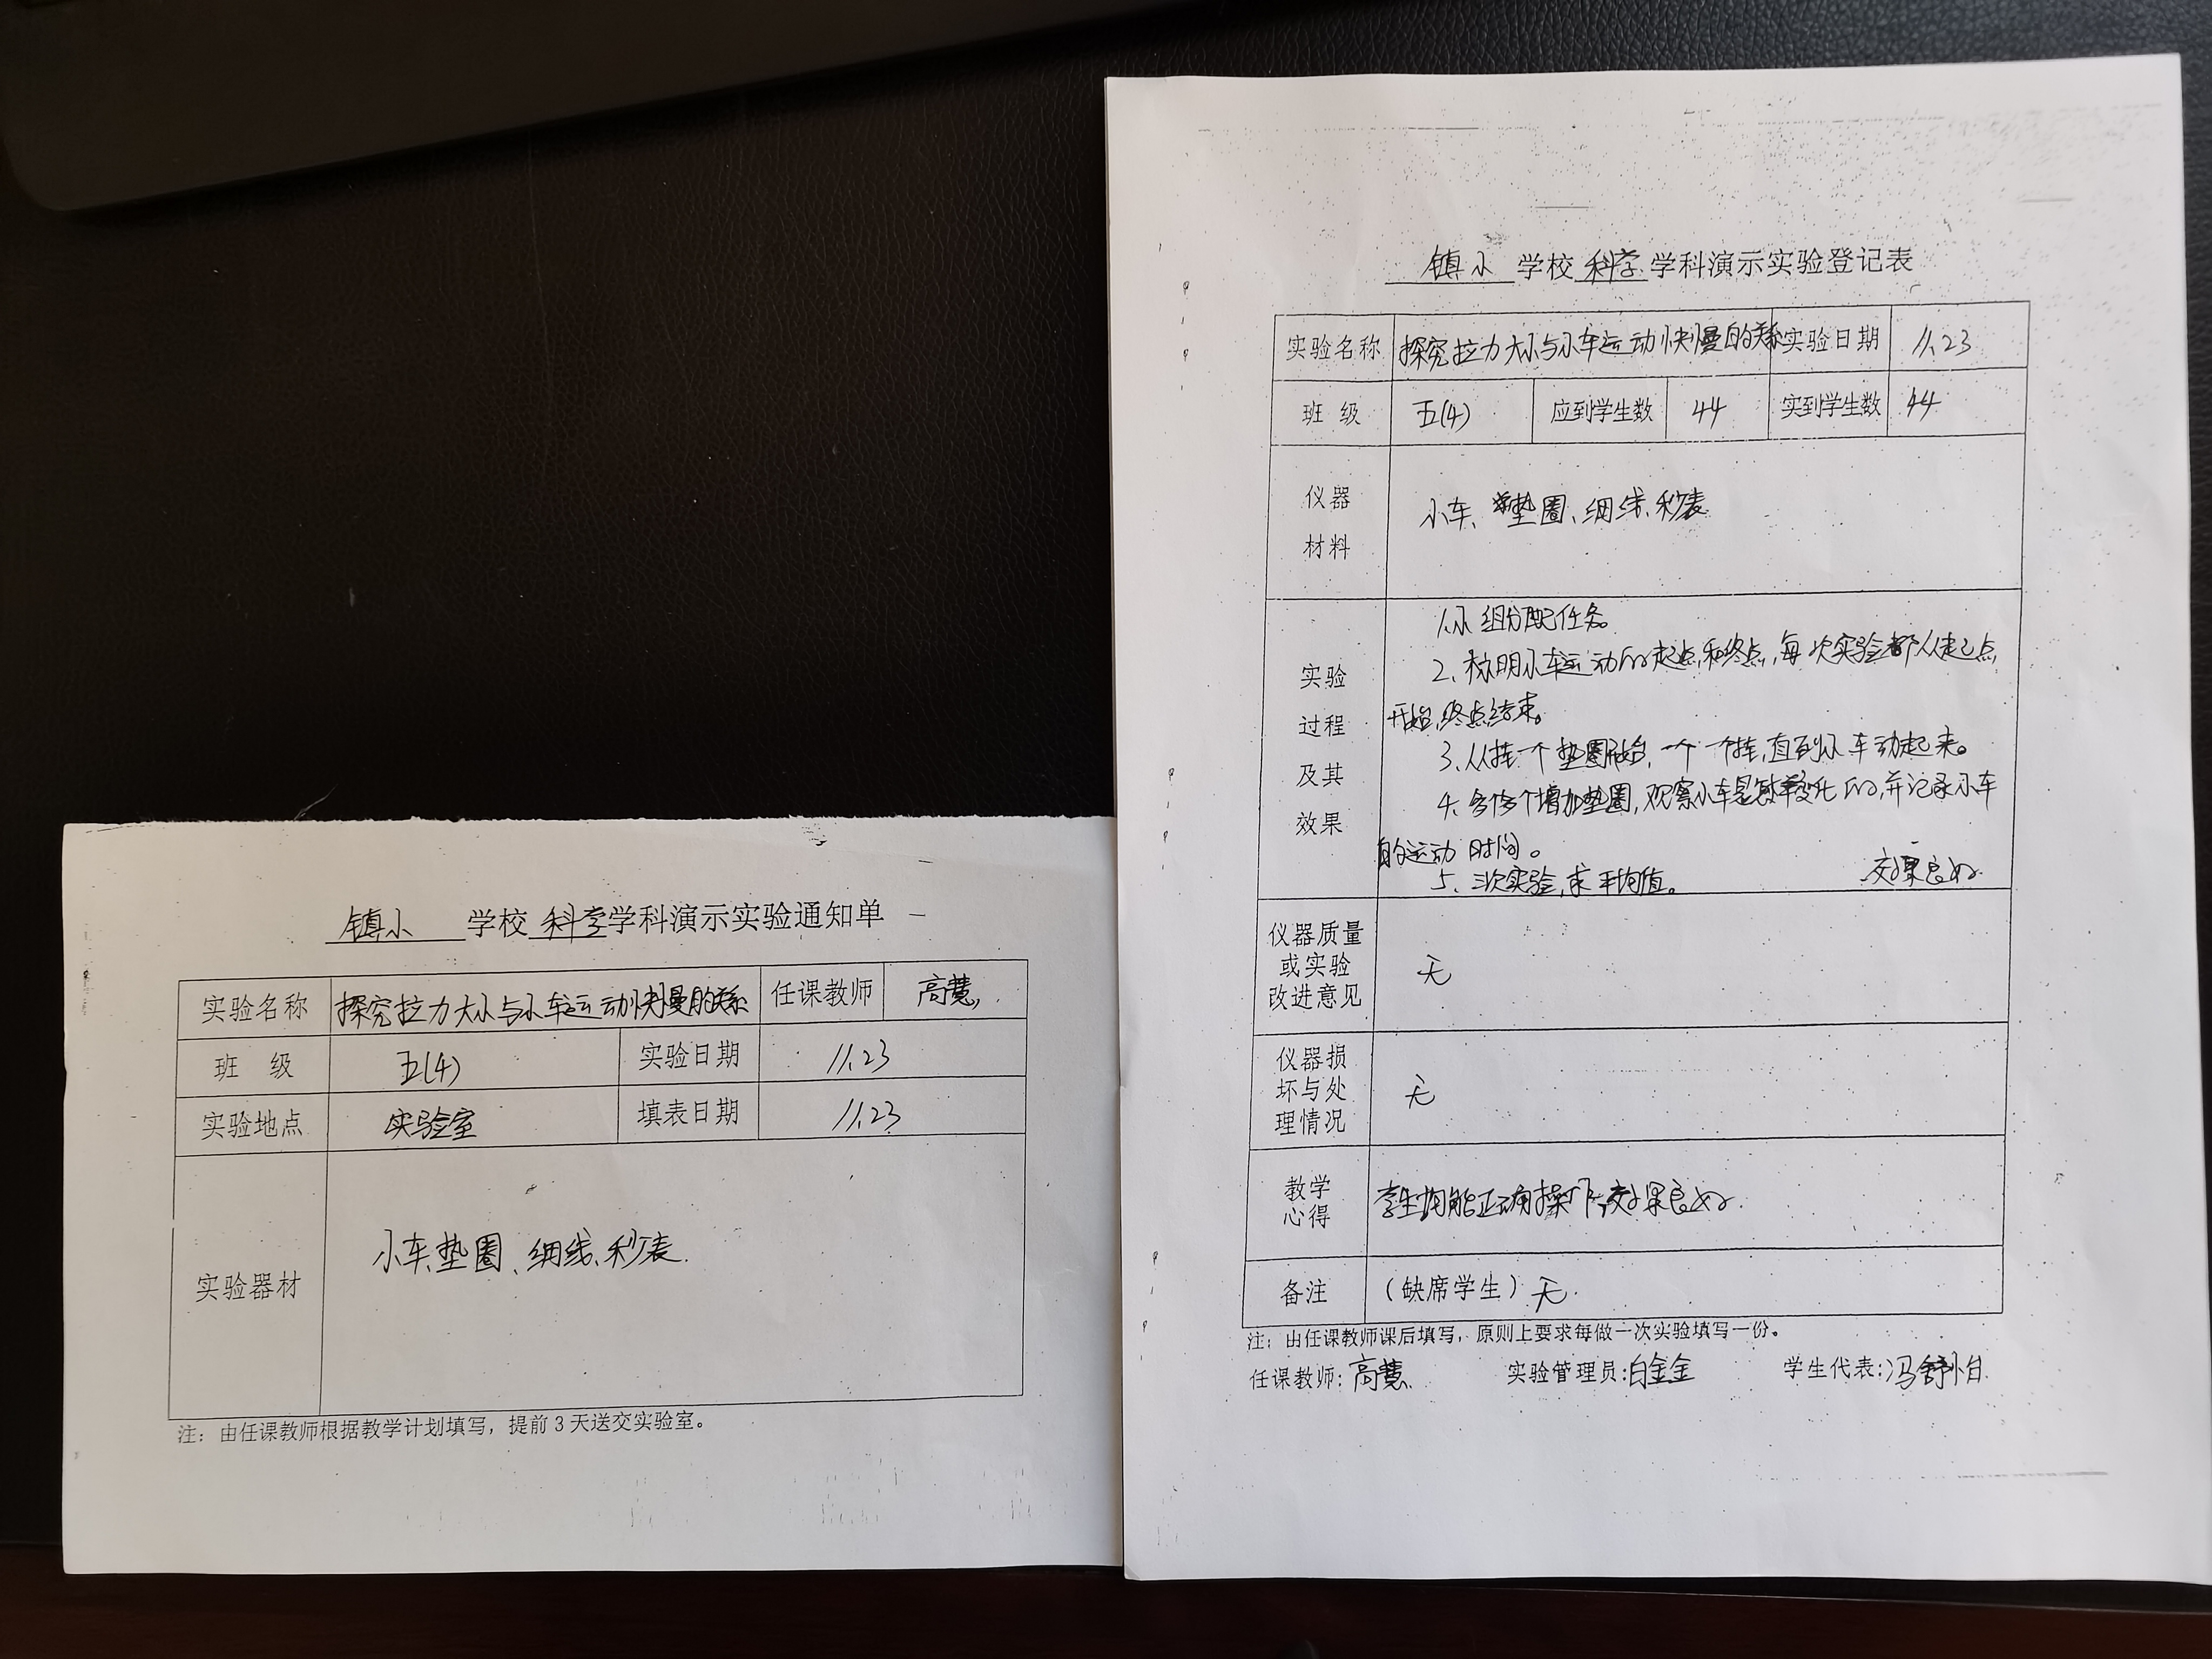 镇小 学校 科学 学科演示实验通知单
实验名称 探究拉力大小与小车运动快慢的关系 任课教师 高慧
班 级 五(4) 实验日期 11.23
实验地点 实验室 填表日期 11.23
实验器材 小车、垫圈、细线、秒表.
注：由任课教师根据教学计划填写，提前3天送交实验室。
镇小 学校 科学 学科演示实验登记表
实验名称 探究拉力大小与小车运动快慢的关系 实验日期 11.23
班 级 五(4) 应到学生数 44 实到学生数 44
仪器
材料
小车、垫圈、细线、秒表
实验
过程
及其
效果
1.小组分配任务。
2、标明小车运动的起点和终点,每次实验都从起点
开始,终点结束。
3、从挂一个垫圈开始,一个一个挂,直到小车动起来。
4、多个增加垫圈,观察小车是怎样变化的,并记录小车
的运动时间。
5、三次实验,求平均值。 效果良好
仪器质量
或实验
改进意见
无
仪器损
坏与处
理情况
无
教学
心得
学生均能正确操作,效果良好.
备注 （缺席学生）无.
注：由任课教师课后填写，原则上要求每做一次实验填写一份。
任课教师：高慧 实验管理员：白金金 学生代表：冯